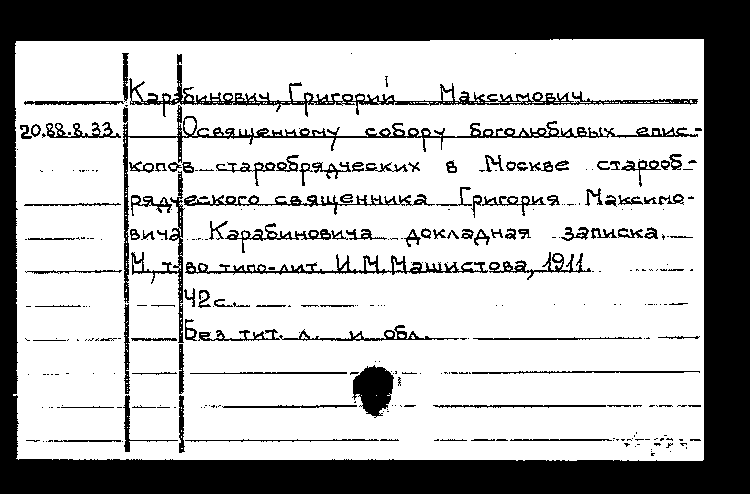 Карабинович, Григорий Максимович.
20.88.8.33. Освященному собору боголюбивых епис-
копов старообрядческих в Москве старооб-
рядческого священника Григория Максимо-
вича Карабиновича докладная записка.
М., т-во типо-лит. И.М.Машистова, 1911.
42с.
Без тит. л. и обл.